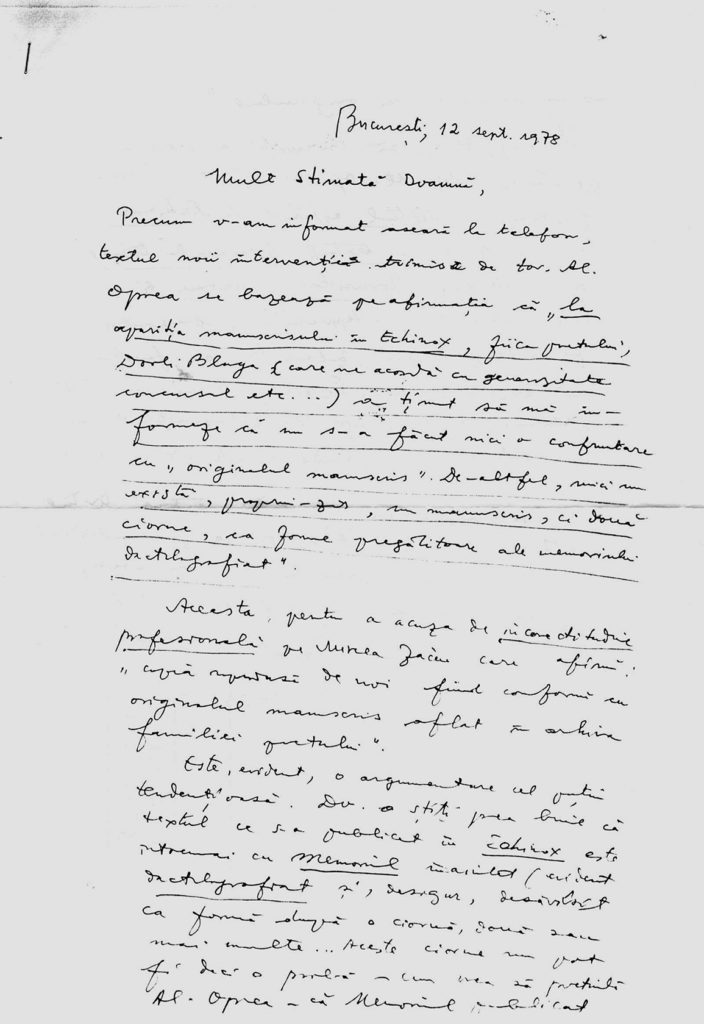 București, 12 sept. 1978
Mult Stimată Doamnă,
Precum v-am informat aseară la telefon,
textul noii intervenții trimise de tov. Al.
Oprea se bazează pe afirmația că „la
apariția manuscrisului în Echinox, fiica poetului,
Dorli Blaga (care ne acordă cu generozitate
concursul etc...) a ținut să mă in-
formeze că nu s-a făcut nici o confruntare
cu „originalul manuscris". De-altfel, nici nu
există, propriu-zis, un manuscris, ci două
ciorne, ca forme pregătitoare ale memoriului
dactilografiat".
Aceasta, pentru a acuza de incorectitudine
profesională pe Mircea Zaciu care afirmă:
„copia reprodusă de noi fiind conformă cu
originalul manuscris aflat în arhiva
familiei poetului".
Este, evident, o argumentare cel puțin
tendențioasă. Dv. știți prea bine că
textul ce s-a publicat în Echinox este
întocmai cu Memoriul înaintat (evident
dactilografiat și, desigur, desăvârșit
ca formă după o ciornă, două sau
mai multe... Aceste ciorne nu pot
fi deci o probă – cum vrea să pretindă
Al. Oprea – că Memoriul publicat